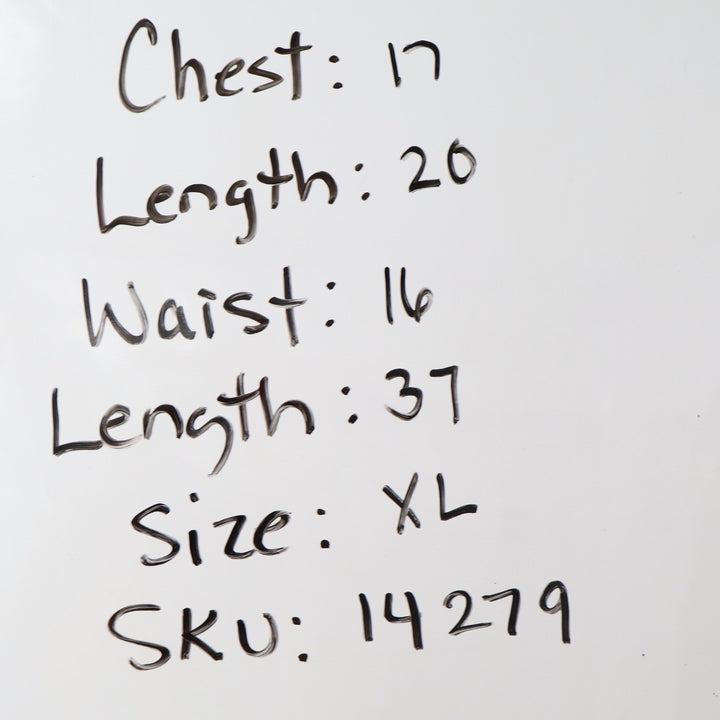 Chest: 17
Length: 20
Waist: 16
Length: 37
Size: XL
SKU: 14279